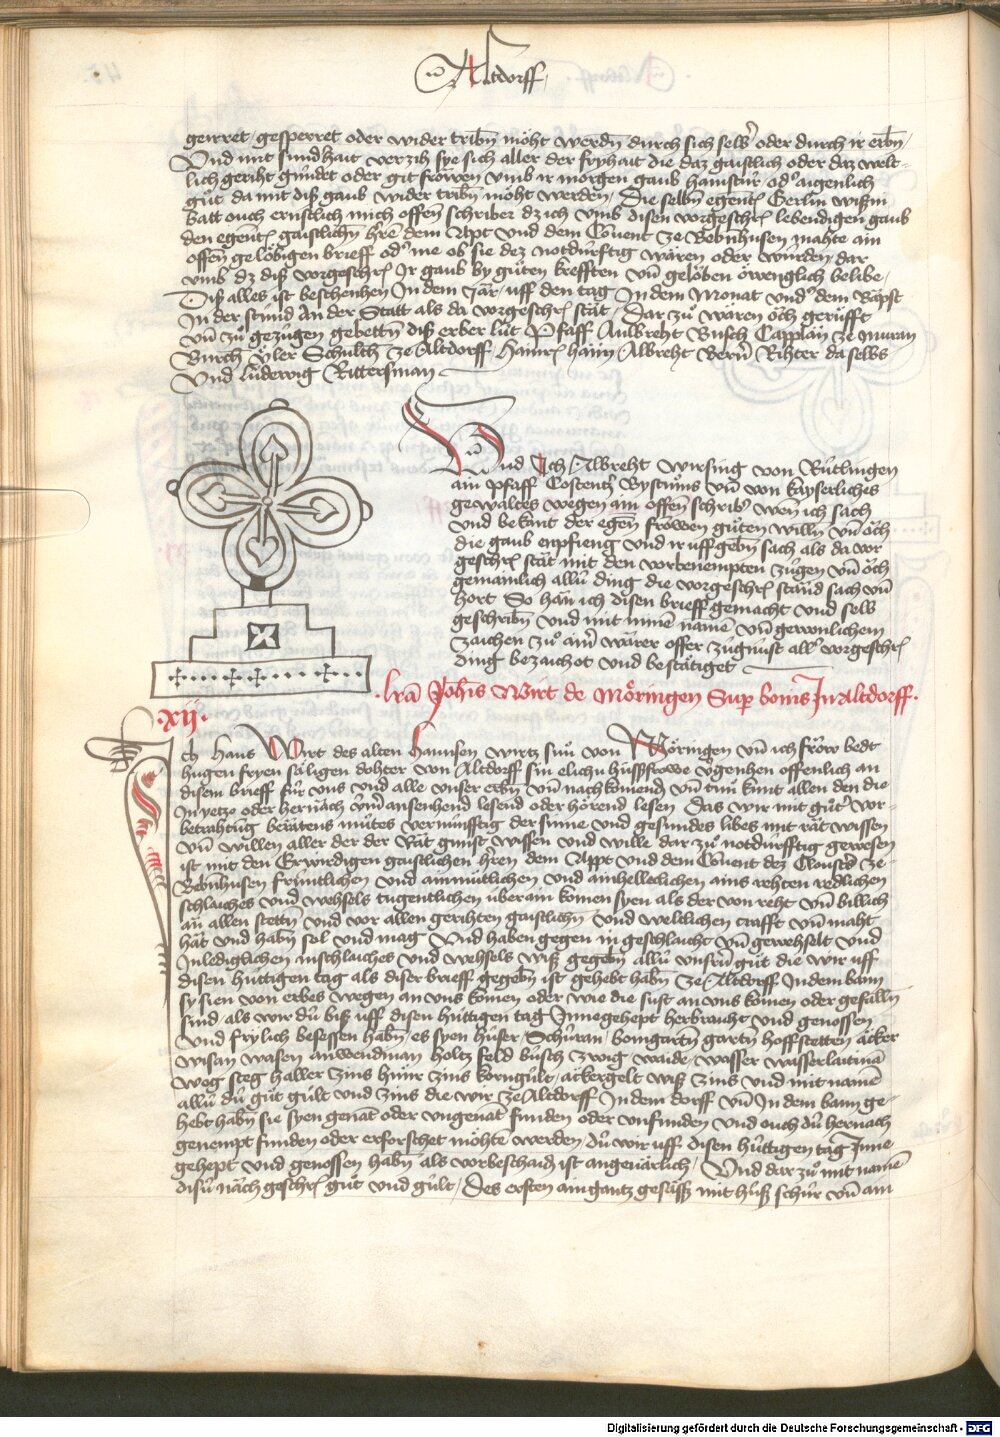 Altdorff
geirret / gesperret oder wider tribn̄ möht werdn̄ durch sich selb oder durch ir erbn̄ /
Vnd mit sundhait verzih sye sich aller der fryhait die daz gaistlich oder daz welt-
lich geriht gúndet oder git fröwen vmb ir morgen gaub haimstúr / od' aigenlich
gůt da mit diß gaub wider tribn̄ möht werden / Die selbn̄ egenēt Gerlin
batt ouch ernstlich mich offen schriber dz ich vmb disen vorgeschr lebendigen gaub
den egenēt gaistlichn̄ hrē dem Apt vnd dem Cōuent ze Bebnhusen mahte ain
offen gelöbigen brieff od' me ob sie dez notdúrftig wären oder wúrden / dar
vmb dz diß vorgeschr Ir gaub by gůten krefften vn̄ gelöben öwenglich belibe /
Diß alles ist beschenhen In dem Jar / uff den tag In dem Monat vnd dem Bäpst
In der stúnd An der Statt als da vorgeschr stät / Dar zů wären öch gerúfft
vn̄ zů gezúgen gebettn̄ diß erber lút Pfaff Aulbreht Busch Capplän ze Muran
Burch yler Schulth ze Altdorff Hainr haim Albreht Rihter daselbs
Vnd Lúdewig Rittersman
Vnd Ich Albreht Wirsing von Rútlingen
ain pfaff Costentz Bystůms vn̄ von kayserliches
gewaltes wegen ain offen schrib' wen̄ ich sach
vnd bekant der egen̄ frowen gůten willn̄ vn̄ öch
die gaub enpfieng vnd ir uff gebn̄ sach als da vor
geschr stät mit den vorbenempten zúgen vn̄ öch
gemainlich allú ding die vorgeschr stand sach vn̄
hort So hän ich disen brieff gemacht vnd selb
geschribn̄ vnd mit minē namē vn̄ gewonlichem
zaichen zů aim̄ wärer offer zúgnúst all' vorgeschr
ding bezaichot vnd bestätiget
lrā Joh̄is Wirt de Möringen Sup bonis In Altdorff .
. xij .
Ich Hans Wirt des alten Hannsen wirtz sun von Möringen vn̄ ich frow bedt
hugen fryen säligen dohter von Altdorff sin elichn hußfrowe vergenhen offenlich an
disem brieff fúr vns vnd alle vnser erbn̄ vn̄ nachkomend vn̄ tun kunt allen den die
In yetzo oder hernäch vm̄ ansenhend lesend oder hörend lesen Das wir mit gůt' vor-
betrahtúng berätens můtes vernúnfftig der sinne vnd gesundes libes mit rät wissen
vn̄ willen aller der der Rät gunst wissen vnd wille dar zů notdurfftig gewesen
ist mit den Erwirdigen gaistlichen hrēn dem Appt vnd dem Cōuent dez Closters ze-
Bebnhusen frúntlichen vnd ainmútlichen vnd ainhelleclichen ains rehten redlichen
schlaiches vnd wehsels tugentlichen úberain komen syen als der von reht vn̄ billich
an allen stettn̄ vnd vor allen gerihten gaistlichn̄ vnd weltlichen crafft vn̄ maht
hät vnd habn̄ sol vnd mag Vnd haben gegen in geschlaicht vn̄ gewehselt vnd
In lediglichen inschlaiches vnd wehsels wiß gegebn̄ allú vnsrú gůt die wir uff
disen húttigen tag als diser brieff gegebn̄ ist gehebt habn̄ ze Altdorff In dem bann
sy sien von erbes wegen an vns komen oder wie die sust an vns komen oder gefalln̄
sind als wir dú biß uff disen húttigen tag Innegehept herbraucht vnd genossen
vnd frylich besessen habn̄ es syen húser / Schúran / bomgartn̄ gartn̄ hoffstetten äcker
wisan wasen anwendinan holtz feld búsch zwig waide / wasser wasserlaitinā
weg steg haller zins húnr zins korngúlt / ackergelt wiß zins vnd mit namē
allú dú gůt gúlt vnd zins die wir ze Altdorff In dem dorff vn̄ In dem bann ge-
hebt habn̄ sie syen genāt oder vngenāt funden oder vnfunden vnd ouch dú hernach
genempt funden oder erforschet möhtē werden / dú wir uff disen húttigen tag Inne
gehept vnd genossen habn̄ als vorbeschaidn̄ ist angeuärlich / Vnd dar zů mit namē
disú näch geschr gůt vnd gúlt / Des ersten ain gantz gesäß mit huß schúr vn̄ ain
Digitalisierung gefördert durch die Deutsche Forschungsgemeinschaft - DFG